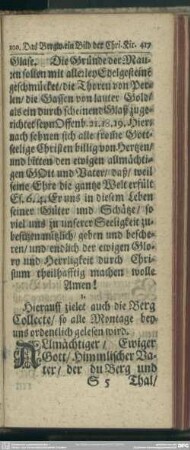 100. Das Bergw. ein Bild der Chri. Kir. 417
Glase. Die Gründe der Mau-
ren sollen mit allerley Edelgesteine
geschmücket / die Thoren von Per-
len / die Gassen von lauter Gold /
als ein durchscheinend Glaß zuge-
richtet seyn Offenb. 21. 18. 19. Hier-
nach sehnen sich alle fromme Gott-
selige Christen billig von Hertzen /
und bitten den ewigen allmächti-
gen GOtt und Vater / daß / weil
seine Ehre die gantze Welt erfüllt
Es. 6. 4. Er uns in diesem Leben
seiner Güter und Schätze / so
viel uns zu unserer Seeligkeit zu-
befürnnützlich / geben und besche-
ren / und endlich der ewigen Glo-
ry und Herrligkeit durch Chri-
stum theilhafftig machen wolle
Amen!
Hierauff zielet auch die Berg
Collecte / so alle Montage bey
uns ordentlich gelesen wird.
Allmächtiger / Ewiger
Gott / Himmlischer Va-
ter / der du Berg und
S 5 Thal /